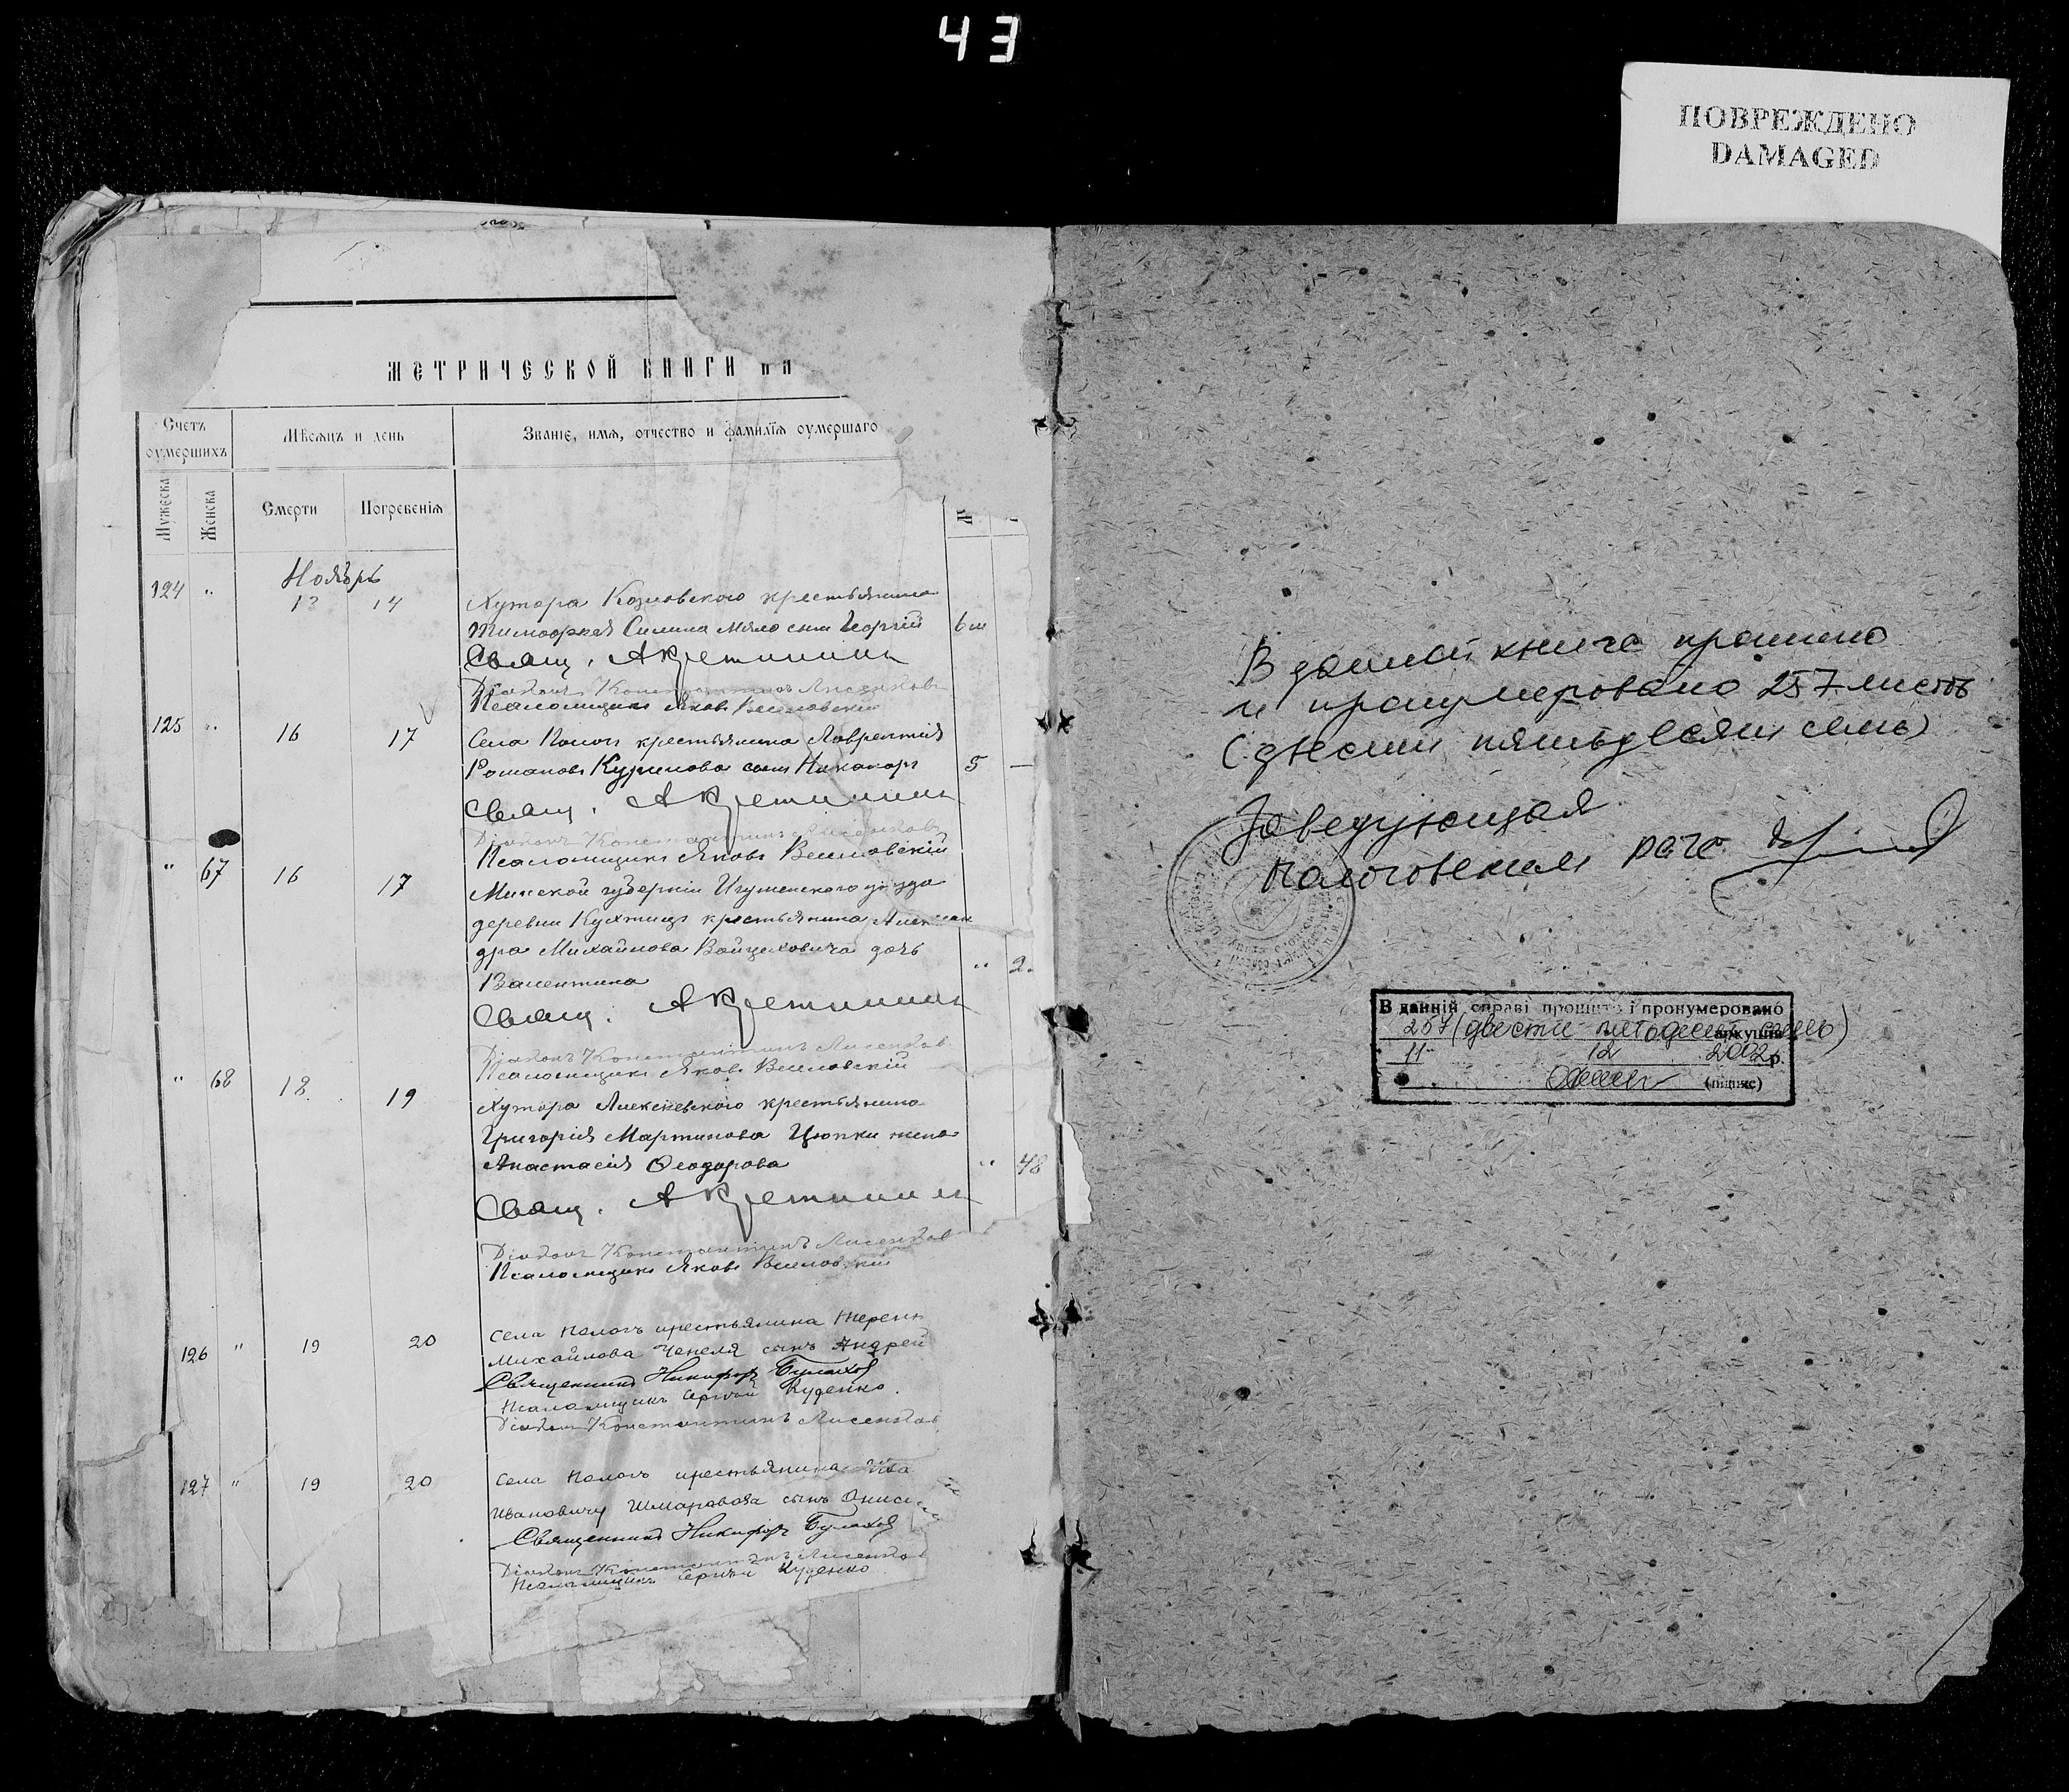 43
ПОВРЕЖДЕНО
DAMAGED
МЕТРИЧЕСКОЙ КНИГИ НА
Счетъ оумершихъ
Мѣсяцъ и день
Званіе, имя, отчество и фамилія оумершаго
Мужеска
Женска
Смерти
Погребенія
Ноябрь
124 " 13 14 Хутора Козловскаго крестьянина
Тимофея Силина сынъ Георгій 6 м
Свящ. А Кретининъ
Діаконъ Константинъ Лисенковъ
Псаломщикъ Яковъ Веселовскій
125 " 16 17 Села Пологъ крестьянина Лаврентія
Романова Курилова сынъ Никаноръ 5 —
Свящ. А Кретининъ
Діаконъ Константинъ Лисенковъ
Псаломщикъ Яковъ Веселовскій
" 67 16 17 Минской губерніи Игуменскаго уѣзда
деревни Кухтицъ крестьянина Алексан
дра Михайлова Войцеховича дочь
Валентина " 2.
Свящ. А Кретининъ
Діаконъ Константинъ Лисенковъ
Псаломщикъ Яковъ Веселовскій
" 68 18 19 Хутора Алексѣевскаго крестьянина
Григорія Мартинова Цюпки жена
Анастасія Ѳеодорова " 48
Свящ. А Кретининъ
Діаконъ Константинъ Лисенковъ
Псаломщикъ Яковъ Веселовскій
126 " 19 20 Села Пологъ крестьянина Терент
Михайлова Чепеля сынъ Андрей
Священникъ Никифоръ Булахов
Псаломщикъ Сергѣй Куденко.
Діаконъ Константинъ Лисенков
127 " 19 20 Села Пологъ крестьянина Ива
Ивановича сынъ
Священникъ Никифоръ Булахов
Діаконъ Константинъ Лисенков
Псаломщикъ Сергѣй Куденко
В данной книге прошито
и пронумеровано 257 листов
(двести пятьдесят семь)
Заведующая
Пологовским загс
В данній справі прошито і пронумеровано
257 (двести пятьдесят семь) аркушів
11 12 2002 р.
(підпис)